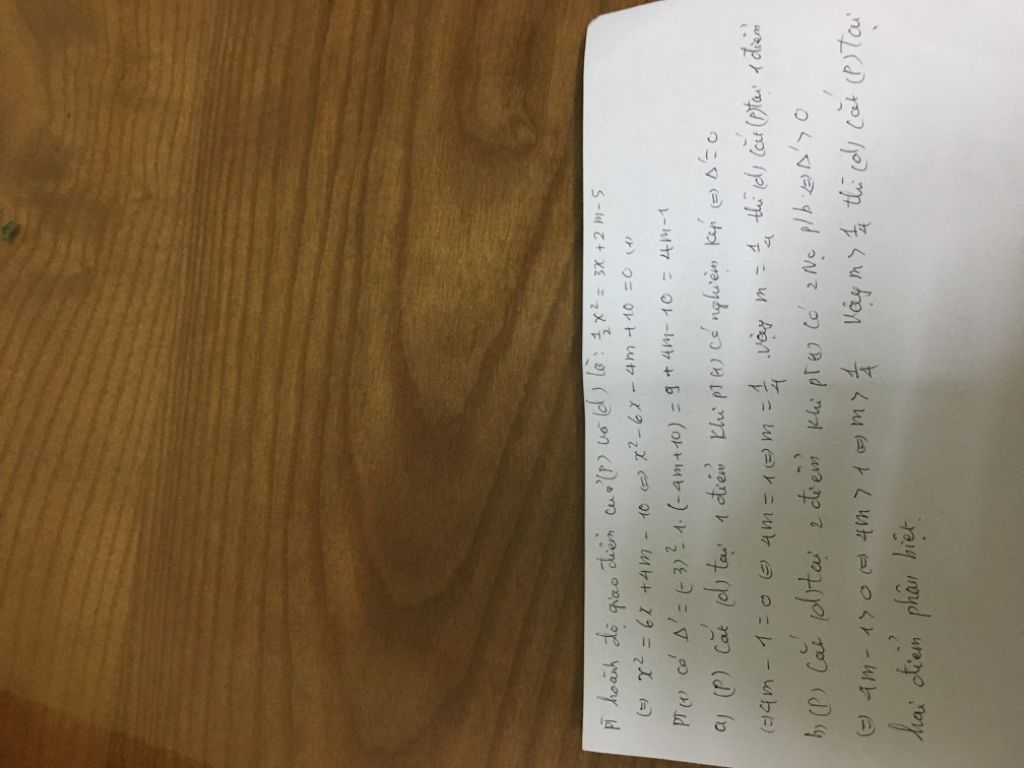 PT hoành độ giao điểm của (P) và (d) là: 1/2 x² = 3x + 2m - 5
⇔ x² = 6x + 4m - 10 ⇔ x² - 6x - 4m + 10 = 0 (1)
PT (1) có Δ' = (-3)² - 1.(-4m+10) = 9 + 4m - 10 = 4m - 1
a) (P) cắt (d) tại 1 điểm khi PT (1) có nghiệm kép ⇔ Δ' = 0
⇔ 4m - 1 = 0 ⇔ 4m = 1 ⇔ m = 1/4. Vậy m = 1/4 thì (d) cắt (P) tại 1 điểm
b) (P) cắt (d) tại 2 điểm khi PT (1) có 2 No p/b ⇔ Δ' > 0
⇔ 4m - 1 > 0 ⇔ 4m > 1 ⇔ m > 1/4 Vậy m > 1/4 thì (d) cắt (P) tại
hai điểm phân biệt.